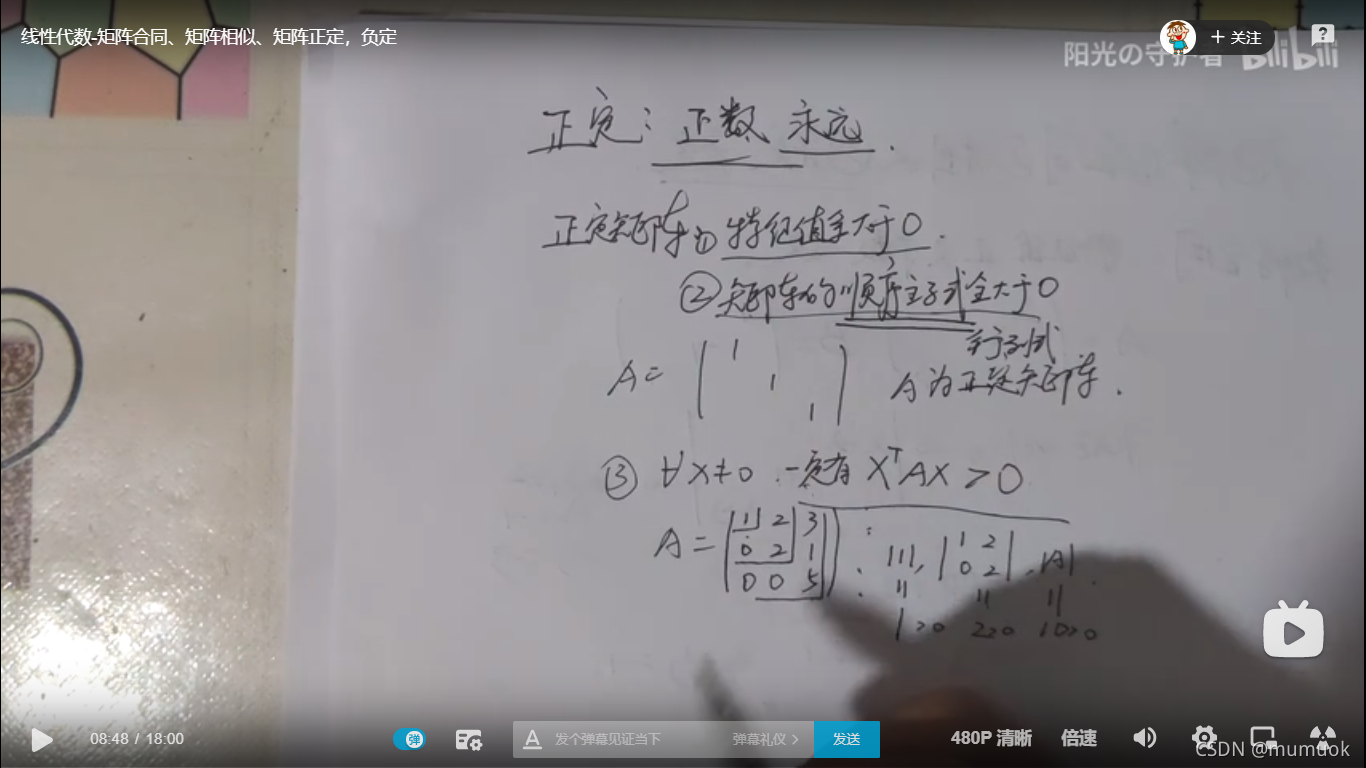 线性代数-矩阵合同、矩阵相似、矩阵正定，负定
+ 关注
阳光の守护者 bilibili
正定：正数 永远.
正定矩阵 ① 特征值全大于0.
② 矩阵的顺序主子式全大于0
行列式
A = ( 1 1 1 ) A为正定矩阵.
③ ∀X≠0. 一定有 XᵀAX > 0
A = ( 1 2 3
0 2 1
0 0 5 ) : |1|, | 1 2
0 2 |, |A|.
11 11 11
1>0 2>0 10>0
08:48 / 18:00
弹
发个弹幕见证当下
弹幕礼仪 >
发送
480P 清晰
倍速
CSDN @mumuok